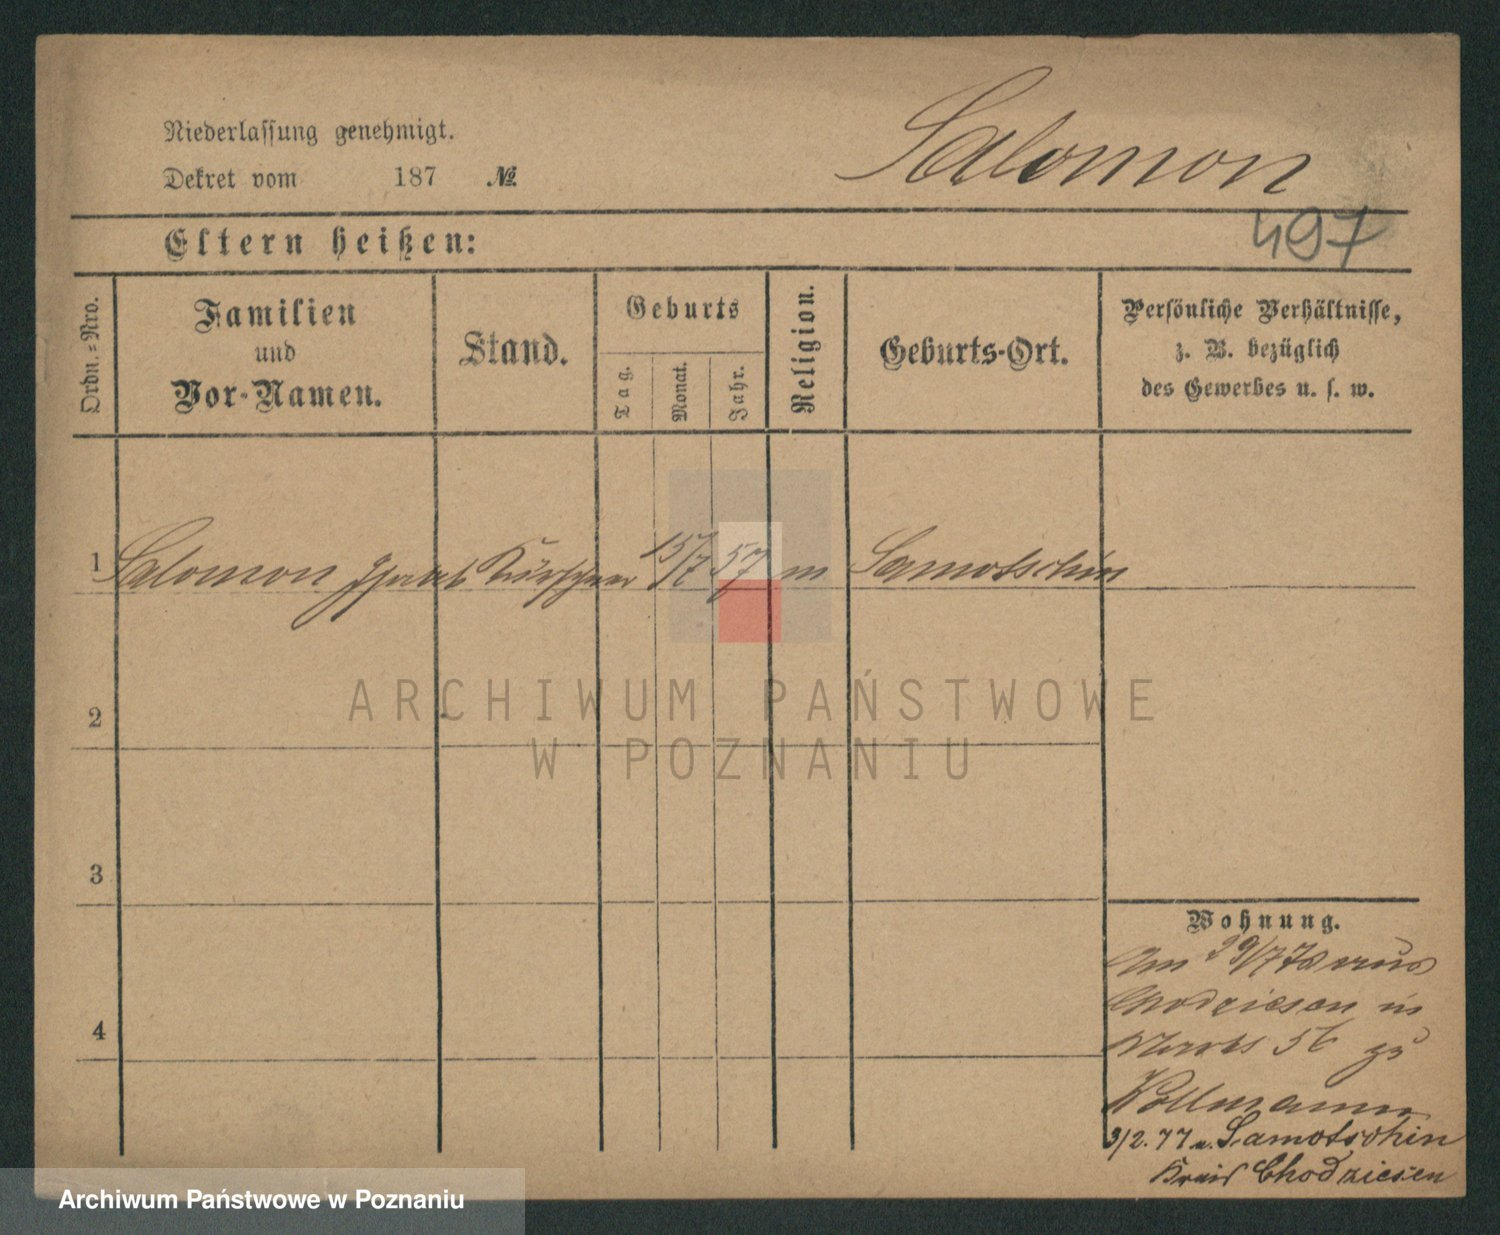 Niederlassung genehmigt.
Dekret vom 187 №
Salomon
497
Eltern heißen:
Ordn.-Nro.
Familien
und
Vor-Namen.
Stand.
Geburts
Tag.
Monat.
Jahr.
Religion.
Geburts-Ort.
Persönliche Verhältnisse,
z. B. bezüglich
des Gewerbes u. s. w.
1 Salomon Isaak Kürschner 15/7 57 m Samotschin
2
3
4
Wohnung.
Am 29/7 76 aus
Chodziesen in
Markt 56 zu
Wollmann
3/2. 77 n. Samotschin
Kreis Chodziesen
ARCHIWUM PAŃSTWOWE
W POZNANIU
Archiwum Państwowe w Poznaniu